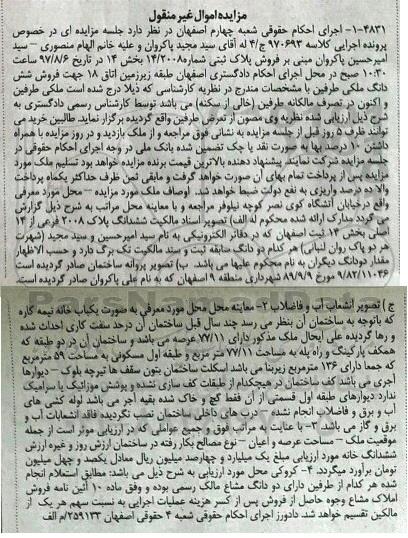 مزایده اموال غیر منقول
۴۸۳۱-۱- اجرای احکام حقوقی شعبه چهارم اصفهان در نظر دارد جلسه مزایده ای در خصوص
پرونده اجرایی کلاسه ۹۷۰۶۹۳ ج/۴ له آقای سید مجید پاکروان و علیه خانم الهام منصوری – سید
امیرحسین پاکروان مبنی بر فروش پلاک ثبتی شماره ۱۴/۲۰۰۸ بخش ۱۴ در تاریخ ۹۷/۸/۶ ساعت
۱۰:۳۰ صبح در محل اجرای احکام دادگستری اصفهان طبقه زیرزمین اتاق ۱۸ جهت فروش شش
دانگ ملکی طرفین با مشخصات مندرج در نظریه کارشناسی که ذیلا درج شده است ملکی طرفین
و اکنون در تصرف مالکانه طرفین (خالی از سکنه) می باشد توسط کارشناس رسمی دادگستری به
شرح ذیل ارزیابی شده نظریه وی مصون از تعرض طرفین واقع گردیده برگزار نماید. طالبین خرید می
توانند ظرف ۵ روز قبل از جلسه مزایده به نشانی فوق مراجعه و از ملک بازدید و در روز مزایده با همراه
داشتن ۱۰ درصد بها به صورت نقد یا چک تضمین شده بانک ملی در وجه اجرای احکام حقوقی در
جلسه مزایده شرکت نمایند. پیشنهاد دهنده بالاترین قیمت برنده مزایده خواهد بود تسلیم ملک مورد
مزایده پس از پرداخت تمام بهای آن صورت خواهد گرفت و مابقی ثمن ظرف حداکثر یکماه پرداخت
والا ده درصد واریزی به نفع دولت ضبط خواهد شد. اوصاف ملک مورد مزایده – محل مورد معرفی
واقع در خیابان آتشگاه کوی نصر کوچه نیلوفر مراجعه و با معاینه محل مراتب به شرح ذیل گزارش
می گردد مدارک ارائه شده محکوم له الف) تصویر اسناد مالکیت ششدانگ پلاک ۲۰۰۸ فرعی از ۱۴
اصلی بخش ۱۴ ثبت اصفهان که در دفاتر الکترونیکی به نام سید امیرحسین و سید مجید (شهرت
هر دو پاک روان لنبانی) هر کدام دو دانگ سابقه ثبت و سند مالکیت تک برگ دارد و حسب الاظهار
مقدار دودانگ دیگران به نام محکوم علیها می باشد. ب) تصویر پروانه ساختمان صادر گردیده است
۹/۸۲/۱۱۰۴۶ مورخ ۸۹/۹/۹ شهرداری منطقه ۹ اصفهان که به نام علی پاکروان صادر گردیده است.
ج) تصویر انشعاب آب و فاضلاب ۲- معاینه محل محل مورد معرفی به صورت یکباب خانه نیمه کاره
که باتوجه به ساختمان آن بنظر می رسد چند سال قبل ساختمان آن درحد سفت کاری احداث شده
و رها گردیده علی ایحال ملک مذکور دارای ۷۷/۱۱ عرصه می باشد و ساختمان آن در دو طبقه که
همکف پارکینگ و راه پله به مساحت ۷۷/۱۱ متر مربع و طبقه اول مسکونی به مساحت ۵۹ مترمربع
که جمعا دارای ۱۳۶ مترمربع زیربنا می باشد اسکلت ساختمان بتون سقف ها تیرچه بلوک – دیوارها
آجری می باشد کف ساختمان در هیچکدام از طبقات کف سازی نشده و پوشش موزائیک یا سرامیک
ندارد دیوارهای طبقه اول قسمتی از آن فقط گچ و خاک شده بقیه آجر می باشد لوله کشی های
آب و برق و فاضلاب انجام نشده – درب های داخلی ساختمان نصب نگردیده فاقد انشعابات آب و
برق و گاز می باشد ۳- با عنایت به مراتب فوق و جمیع عواملی که در ارزیابی موثر است از جمله
موقعیت ملک – مساحت عرصه و اعیان – نوع مصالح بکار رفته در ساختمان ارزش روز و غیره ارزش
ششدانگ خانه مورد ارزیابی مبلغ یک میلیارد و چهارصد میلیون ریال معادل یکصد و چهل میلیون
تومان برآورد میگردد ۴- کروکی محل مورد ارزیابی به شرح ذیل می باشد: مطابق استعلام انجام
شده هر کدام از طرفین دارای دو دانگ مشاع مالک رسمی بوده و وفق ماده ۱۰ آئین نامه فروش
املاک مشاع وجوه حاصل از فروش پس از کسر هزینه عملیات اجرایی به نسبت سهم هر یک از
مالکین تقسیم خواهد شد. دادورز اجرای احکام حقوقی شعبه ۴ حقوقی اصفهان ۲۵۹۱۳۳/م الف